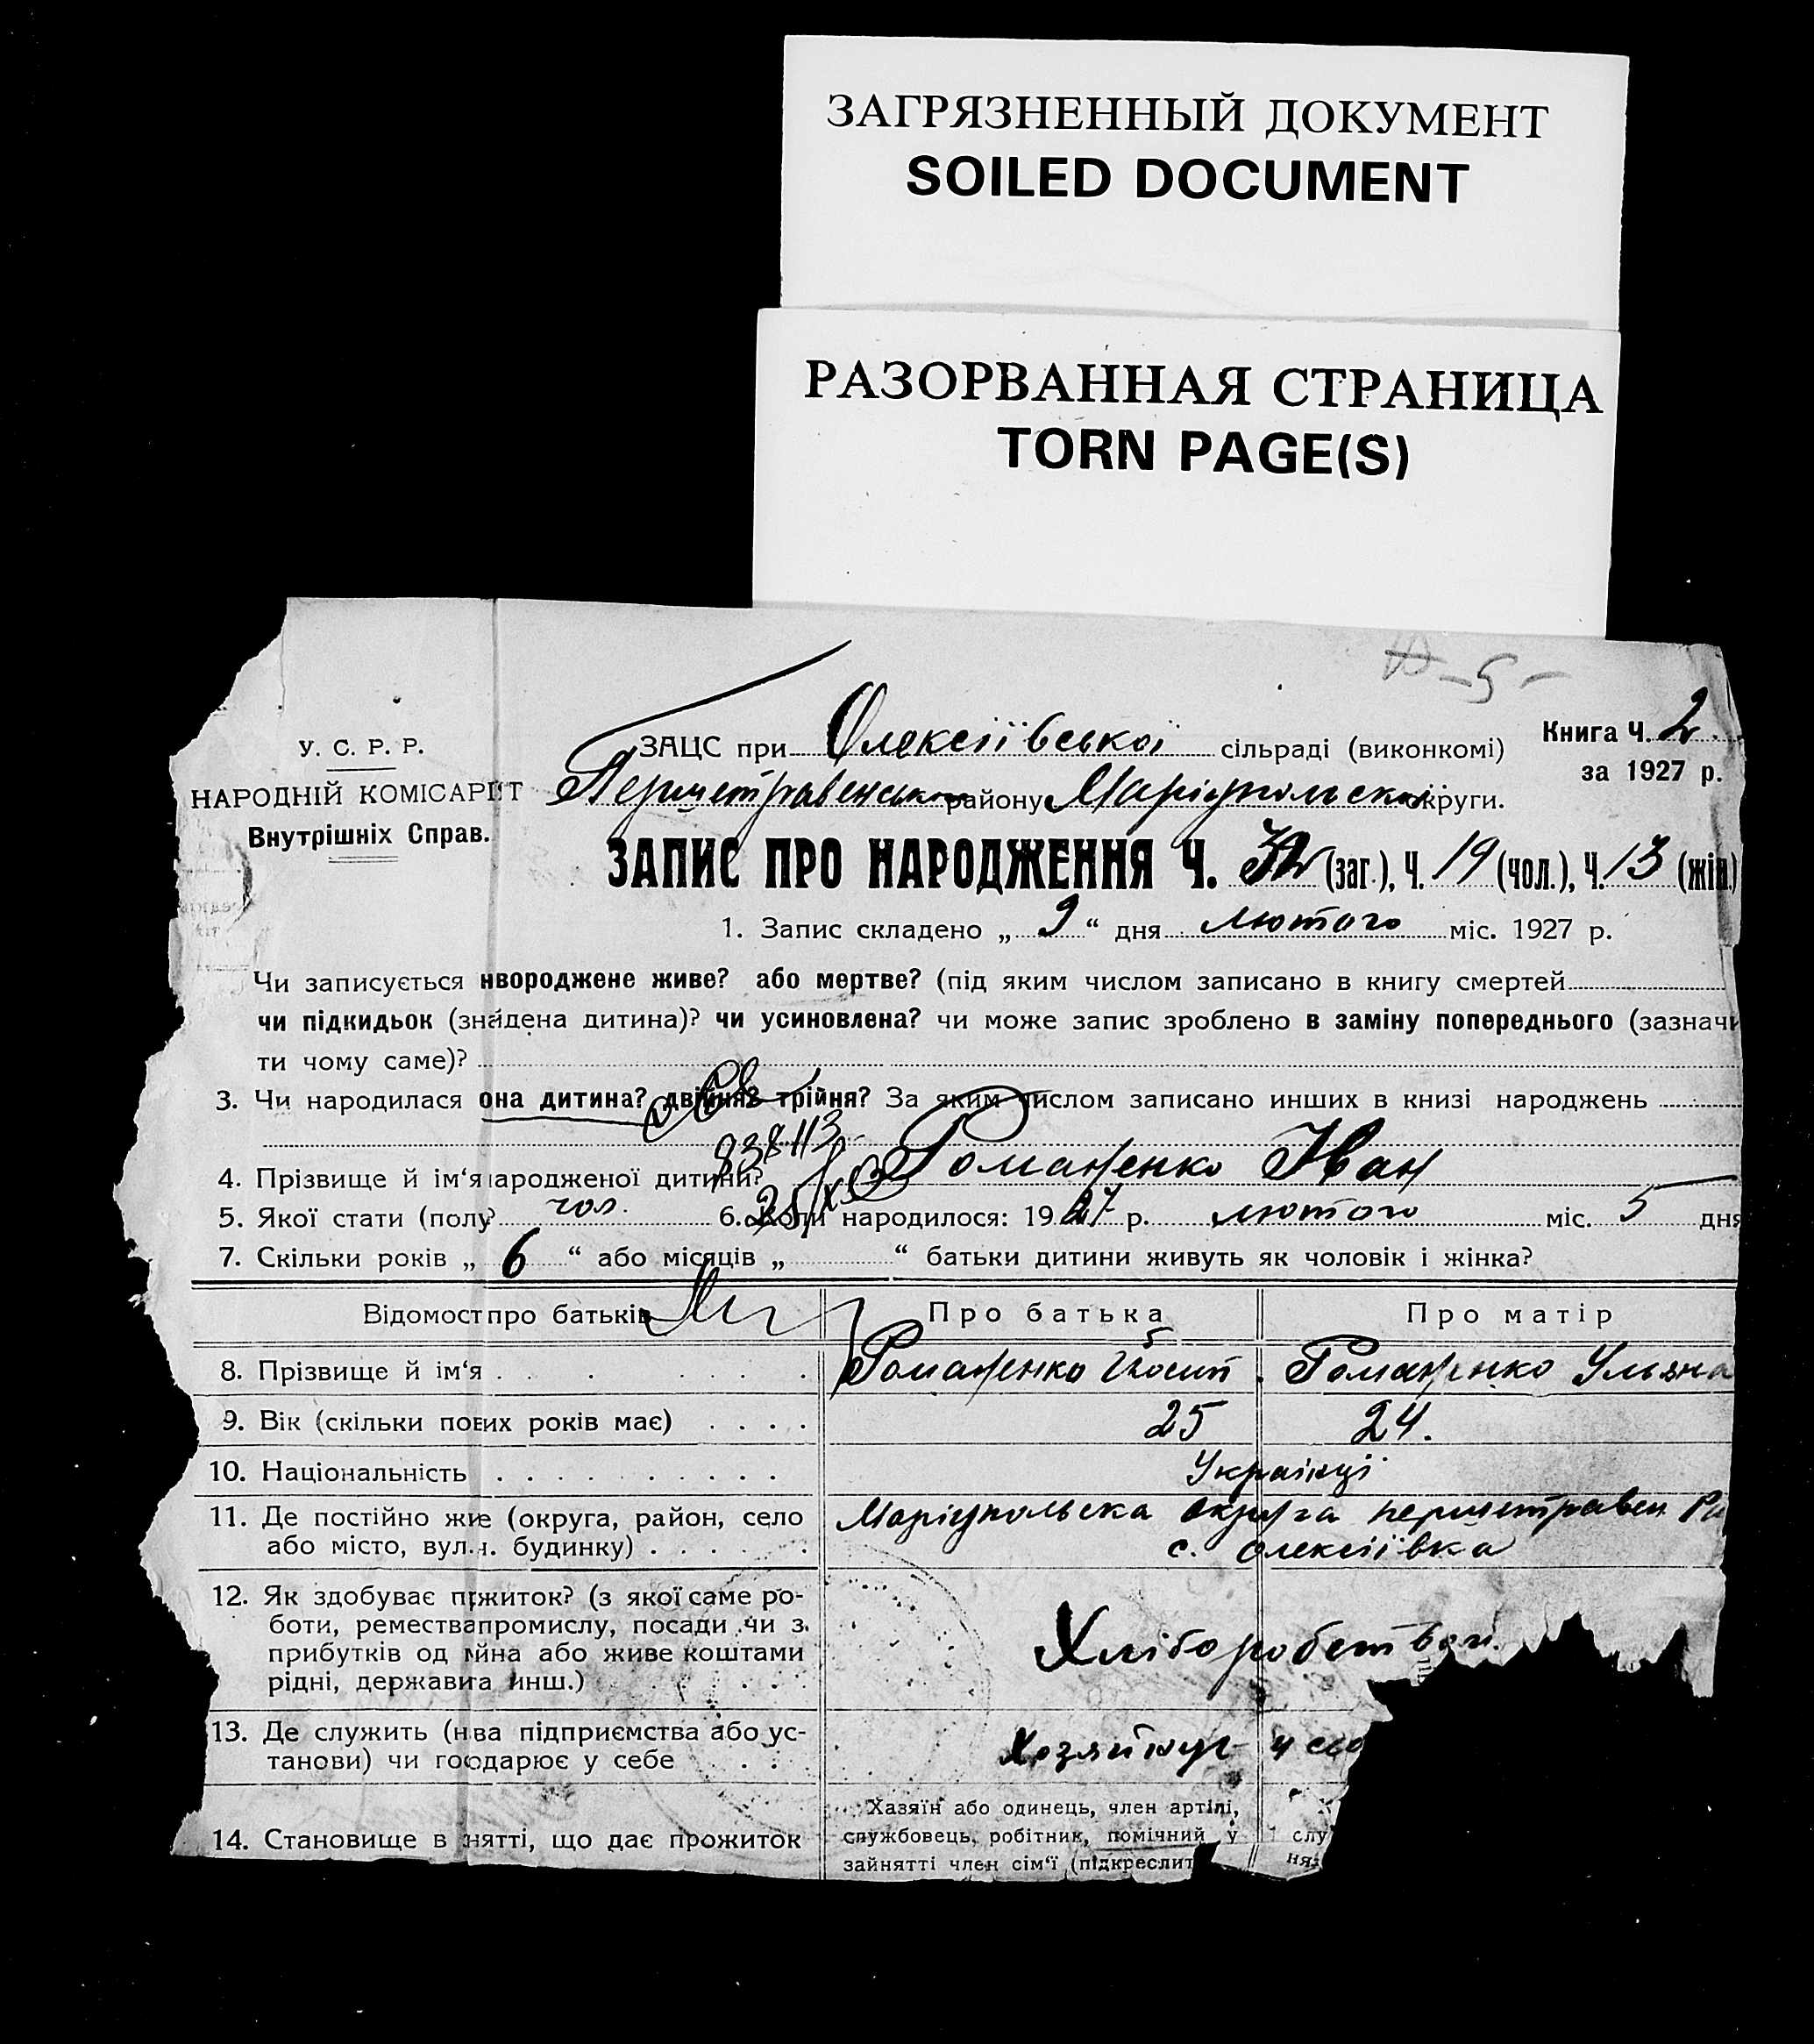 ЗАГРЯЗНЕННЫЙ ДОКУМЕНТ
SOILED DOCUMENT
РАЗОРВАННАЯ СТРАНИЦА
TORN PAGE(S)
-5-
У. С. Р. Р.
НАРОДНІЙ КОМІСАРІТ
Внутрішніх Справ.
ЗАЦС при Олексіївської сільраді (виконкомі)
Книга Ч. 2
за 1927 р.
Першетравенського району Маріупольської округи.
ЗАПИС ПРО НАРОДЖЕННЯ Ч. 32 (заг.), Ч. 19 (чол.), Ч. 13 (жін.)
1. Запис складено „ 9 “ дня лютого міс. 1927 р.
Чи записується нвороджене живе? або мертве? (під яким числом записано в книгу смертей
чи підкидьок (знайдена дитина)? чи усиновлена? чи може запис зроблено в заміну попереднього (зазначи
ти чому саме)?
3. Чи народилася она дитина? двійня? трійня? За яким числом записано инших в книзі народжень
938113
4. Прізвище й ім‘я народженої дитини? Романенко Іван
5. Якої стати (полу? чол. 6. Коли народилося: 1927 р. лютого міс. 5 дня
7. Скільки років „ 6 “ або місяців „ “ батьки дитини живуть як чоловік і жінка?
Відомост про батьків Про батька Про матір
8. Прізвище й ім‘я Романенко Йосип Романенко Уляна
9. Вік (скільки повних років має) 25 24.
10. Національність Українці
11. Де постійно живе (округа, район, село Маріупольска округа першетравен. Ра
або місто, вул. ч. будинку) с. Олексіївка
12. Як здобуває пржиток? (з якої саме ро-
боти, ремества промислу, посади чи з
прибутків од майна або живе коштами
рідні, держави та инш.)
Хліборобством
13. Де служить (нва підприємства або ус-
танови) чи господарює у себе
Хозяйнує у сво
14. Становище в нятті, що дає прожиток
Хазяїн або одинець, член артілі,
службовець, робітник, помічний у
зайнятті член сім‘ї (підкреслит
слу
няз